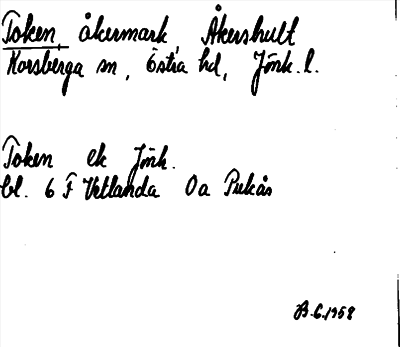 Token, åkermark Åkershult
Korsberga sn, Östra hd, Jönk. l.
Token ek Jönk.
bl. 6 F Vetlanda Oa Pukås
B.G. 1958